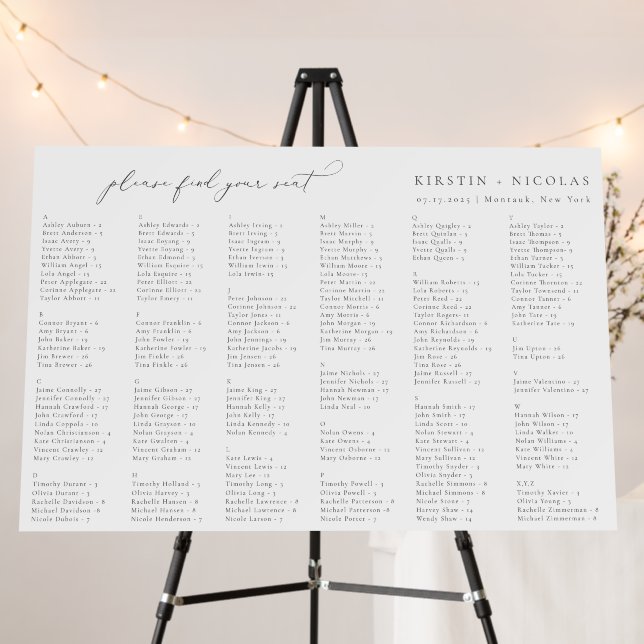 please find your seat
KIRSTIN + NICOLAS
07.17.2025 | Montauk, New York
A
Ashley Auburn - 2
Brett Anderson - 5
Isaac Avery - 9
Yvette Avery - 9
Ethan Abbott - 3
William Angel - 15
Lola Angel - 15
Peter Applegate - 2
Corinne Applegate - 2
Taylor Abbott - 11
B
Connor Bryant - 6
Amy Bryant - 6
John Baker - 10
Katherine Baker - 19
Jim Brewer - 26
Tina Brewer - 26
C
Jaime Connolly - 27
Jennifer Connolly - 27
Hannah Crawford - 17
John Crawford - 17
Linda Coppola - 10
Nolan Christianson - 4
Kate Christianson - 4
Vincent Crawley - 12
Mary Crawley - 12
D
Timothy Durant - 3
Olivia Durant - 3
Rachelle Davidson - 8
Michael Davidson - 8
Nicole Dubois - 7
E
Ashley Edwards - 2
Brett Edwards - 5
Isaac Eoyang - 9
Yvette Eoyang - 9
Ethan Edmond - 3
William Esquire - 15
Lola Esquire - 15
Peter Elliott - 2
Corinne Elliott - 2
Taylor Emery - 11
F
Connor Franklin - 6
Amy Franklin - 6
John Fowler - 19
Katherine Fowler - 19
Jim Finkle - 26
Tina Finkle - 26
G
Jaime Gibson - 27
Jennifer Gibson - 27
Hannah George - 17
John George - 17
Linda Grayson - 10
Nolan Grayson - 4
Kate Gwalton - 4
Vincent Graham - 12
Mary Graham - 12
H
Timothy Holland - 3
Olivia Harvey - 3
Rachelle Hansen - 8
Michael Hansen - 8
Nicole Henderson - 7
I
Ashley Irving - 2
Brett Irving - 5
Isaac Ingram - 9
Yvette Ingram - 9
Ethan Iverson - 3
William Irwin - 15
Lola Irwin - 15
J
Peter Johnson - 2
Corinne Johnson - 2
Taylor Jones - 11
Connor Jackson - 6
Amy Jackson - 6
John Jennings - 19
Katherine Jacobs - 19
Jim Jensen - 26
Tina Jensen - 26
K
Jaime King - 27
Jennifer King - 27
Hannah Kelly - 17
John Kelly - 17
Linda Kennedy - 10
Nolan Kennedy - 4
L
Kate Lewis - 4
Vincent Lewis - 12
Mary Lee - 12
Timothy Long - 3
Olivia Long - 3
Rachelle Lawrence - 8
Michael Lawrence - 8
Nicole Larson - 7
M
Ashley Miller - 2
Brett Marvin - 5
Isaac Murphy - 9
Yvette Murphy - 9
Ethan Matthews - 3
William Moore - 15
Lola Moore - 15
Peter Martin - 2
Corinne Martin - 2
Taylor Mitchell - 11
Connor Morris - 6
Amy Morris - 6
John Morgan - 19
Katherine Morgan - 19
Jim Murray - 26
Tina Murray - 26
N
Jaime Nichols - 27
Jennifer Nichols - 27
Hannah Newman - 17
John Newman - 17
Linda Neal - 10
O
Nolan Owens - 4
Kate Owens - 4
Vincent Osborne - 12
Mary Osborne - 12
P
Timothy Powell - 3
Olivia Powell - 3
Rachelle Patterson - 8
Michael Patterson - 8
Nicole Porter - 7
Q
Ashley Quigley - 2
Brett Quinlan - 5
Isaac Qualls - 9
Yvette Qualls - 9
Ethan Queen - 3
R
William Roberts - 15
Lola Roberts - 15
Peter Reed - 2
Corinne Reed - 2
Taylor Rogers - 11
Connor Richardson - 6
Amy Richardson - 6
John Reynolds - 19
Katherine Reynolds - 19
Jim Rose - 26
Tina Rose - 26
Jaime Russell - 27
Jennifer Russell - 27
S
Hannah Smith - 17
John Smith - 17
Linda Scott - 10
Nolan Stewart - 4
Kate Stewart - 4
Vincent Sullivan - 12
Mary Sullivan - 12
Timothy Snyder - 3
Olivia Snyder - 3
Rachelle Simmons - 8
Michael Simmons - 8
Nicole Stone - 7
Harvey Shaw - 14
Wendy Shaw - 14
T
Ashley Taylor - 2
Brett Thomas - 5
Isaac Thompson - 9
Yvette Thompson - 9
Ethan Turner - 3
William Tucker - 15
Lola Tucker - 15
Corinne Thornton - 22
Taylor Townsend - 11
Connor Tanner - 6
Amy Tanner - 6
John Tate - 19
Katherine Tate - 19
U
Jim Upton - 26
Tina Upton - 26
V
Jaime Valentino - 27
Jennifer Valentino - 27
W
Hannah Wilson - 17
John Wilson - 17
Linda Walker - 10
Nolan Williams - 4
Kate Williams - 4
Vincent White - 12
Mary White - 12
X,Y,Z
Timothy Xavier - 3
Olivia Young - 3
Rachelle Zimmerman - 8
Michael Zimmerman - 8